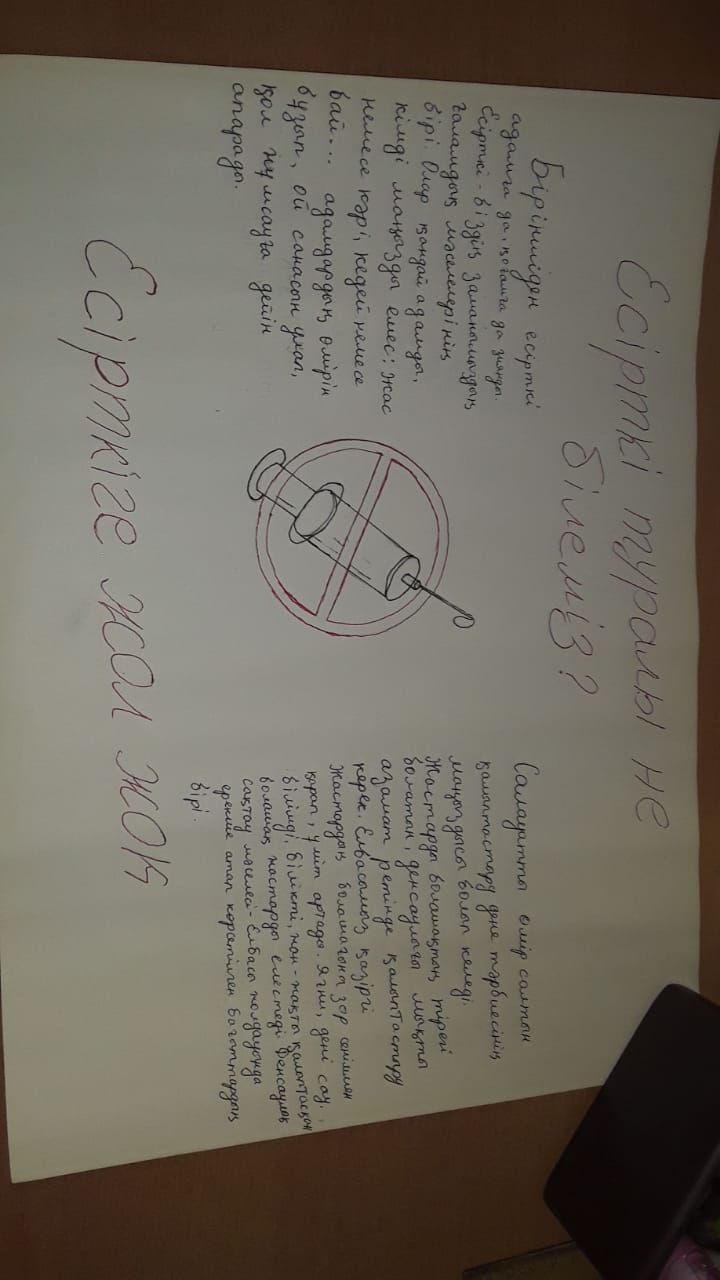 Есірткі туралы не
білеміз?
Біріншіден есірткі
адамға да, қоғамға да зиянды.
Есірткі - біздің заманымыздың
ғаламдық мәселелерінің
бірі. Олар қандай адамды,
кімді маңызды емес: жас
немесе кәрі, кедей немесе
бай... адамдардың өмірін
бұзып, ой санасын улап,
қол жұмсауға дейін
апарады.
Салауатты өмір салтын
қалыптастару дене тәрбиесінің
маңыздысы болып келеді.
Жастарды болашақтың тірегі
болатын, денсаулығы мықты
азамат ретінде қалыптастыру
керек. Елбасымыз қазіргі
жастардың болашағына зор сеніммен
қарап, үміт артады. Яғни, дені сау,
білімді, білікті, жан-жақты қалыптасқан
болашақ жастарды елестеді Денсаулық
сақтау мәселей - Елбасы жолдауында
ерекше атап көрсетілген бағыттардың
бірі.
Есірткіге жол жоқ